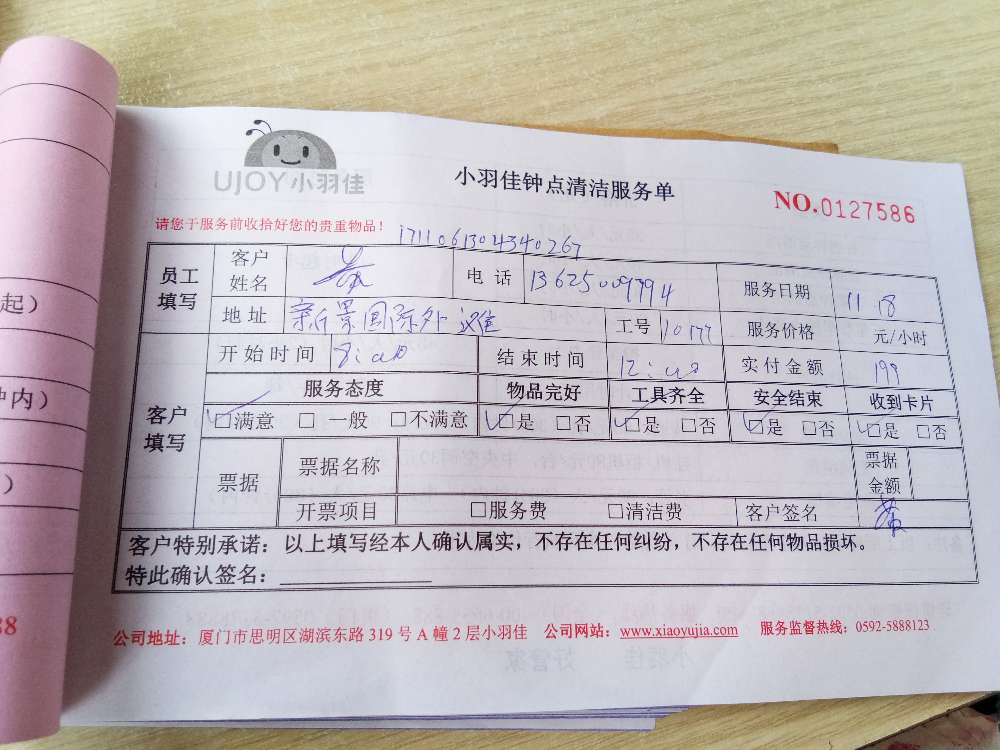 UJOY小羽佳
小羽佳钟点清洁服务单
NO.0127586
请您于服务前收拾好您的贵重物品！
1711061304340267
员工填写 客户姓名 电话 13625009794 服务日期 11 18
地址 新景国际外滩 工号 10177 服务价格 元/小时
开始时间 8:00 结束时间 12:00 实付金额 199
客户填写 服务态度 物品完好 工具齐全 安全结束 收到卡片
□满意 □一般 □不满意 □是 □否 □是 □否 □是 □否 □是 □否
票据 票据名称 票据金额
开票项目 □服务费 □清洁费 客户签名
客户特别承诺：以上填写经本人确认属实，不存在任何纠纷，不存在任何物品损坏。
特此确认签名：
公司地址：厦门市思明区湖滨东路319号A幢2层小羽佳 公司网站：www.xiaoyujia.com 服务监督热线：0592-5888123
起）
钟内）
）
88